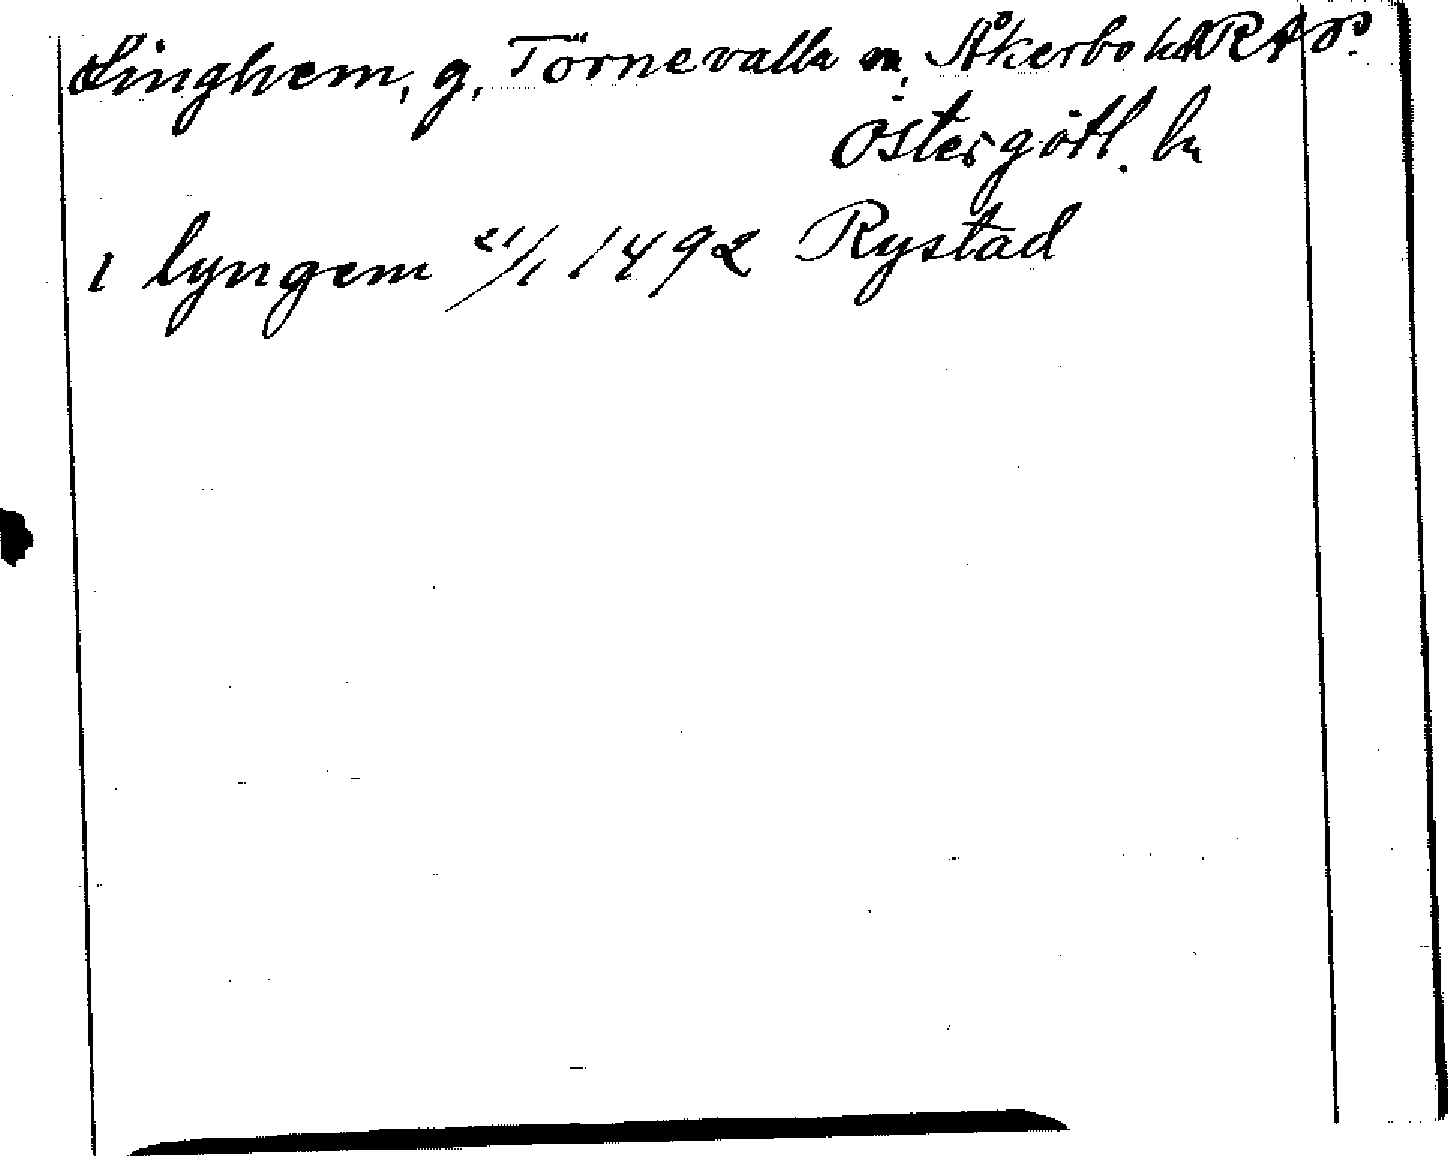 Linghem, g, Törnevalla sn, Åkerbo hd RAP.
Östergötl. ln
i lyngem 21/1 1492 Rystad